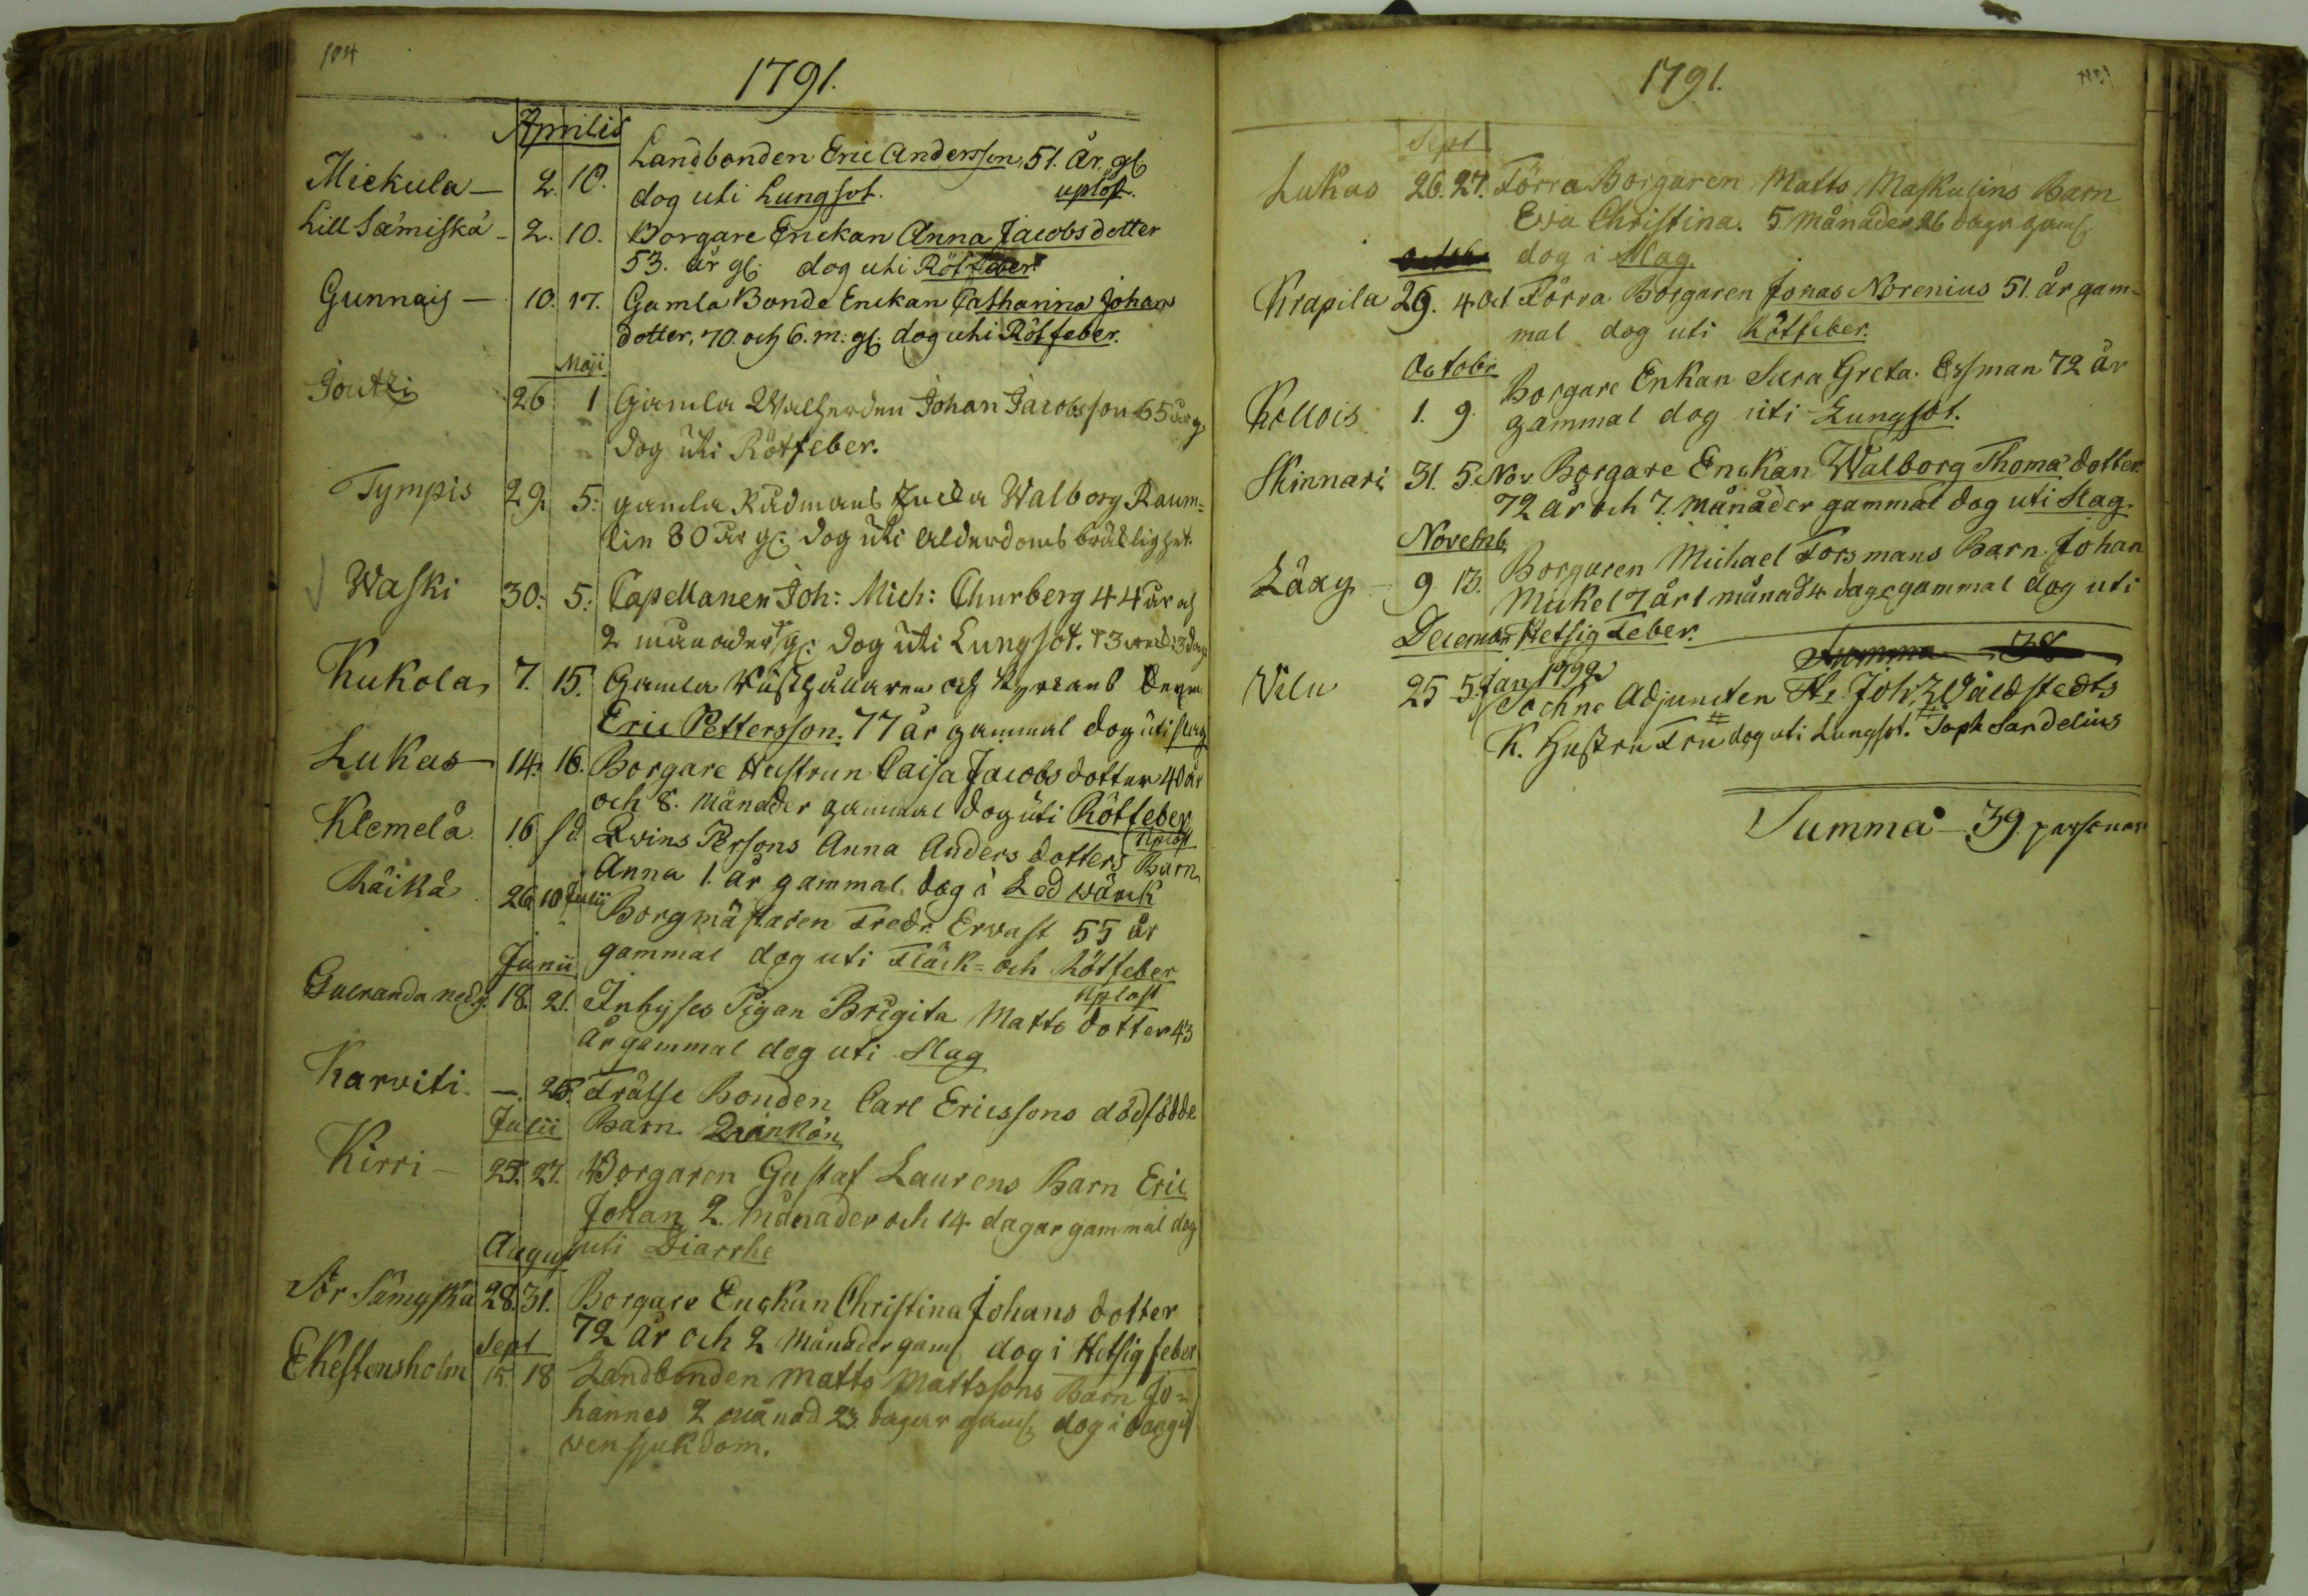 184
1791.
Aprilis
Landbonden Eric Andersson, 51. År. gl
Mickula — 2. 10. dog uti Lungsot. uplöst.
Lill Sämiskä – 2. 10. Borgare Enckan Anna Jacobs dotter
53. år gl: dog uti Rötfeber
Gunnais — 10. 17. Gamla Bonde Enckan Catharina Johans
dotter, 70. och 6. m: gl: dog uti Rötfeber.
Maji
Goutzi 26 1 Gamla Johan Jacobsson 65 år g.
dog uti Rötfeber.
Tympis 29. 5: gamla Rådmans Walborg Raum=
lin 80 år gl: dog uti Alderdoms bräcklighet.
Waski 30: 5: Capellanen Joh: Mich: Churberg 44 år och
2 månader gl: dog uti Lungsot. 3
Kukola 7. 15. Gamla Rusthållaren och
Eric Pettersson. 77 år gammal dog uti slag
Lukas 14. 16. Borgare Hustrun Caisa Jacobs dotter 40 år
och 8. Månader gammal dog uti Rötfeber
Uplöst
Klemelä 16 Qwins Persons Anna Anders dotters Barn
Anna 1. år gammal. dog i Led wärck
Räikä 26 10 Julii Borgmästaren Fredr. Erwast 55 år
gammal dog uti Fläck= och Rötfeber
Junii Uplöst
nedg. 18. 21. Inhyses Pigan Brigita Matts dotter 43
År gammal dog uti Slag
Karviti. —. 26. Frälse Bonden Carl Ericssons dödfödde
Julii Barn Qwinkön
Kirri – 25. 27. Borgaren Gustaf Laurens Barn Eric
Johan 2. Månader och 14 dagar gammal dog
August uti Diarrhe
Sör Sämyskä 28. 31. Borgare Enckan Christina Johans dotter
72 år och 2 Månader gaml dog i Hetsig feber
Sept
Ekestensholm 15. 18 Landbonden Matts Mattssons Barn Jo=
hannes 2 Månad 23 dagar gaml dog i
sjukdom.
1791.
Sept
Lukas 26. 27. Förra Borgaren Matts Maskulins Barn
Eva Christina. 5 Månader 26 dagr gaml
Octobr dog i Slag.
Krapila 29. 4 Oct. Förra Borgaren Jonas Norenius 51. år gam=
mal dog uti Rötfeber.
Octobr
Borgare Enkan Sara Greta. Essman 72 år
Kollois 1. 9. gammal dog uti Lungsot.
Skinnari 31. 5. Nov Borgare Enckan Walborg Thomæ dotter
72 år och 7. Månader gammal dog uti Slag.
Novemb.
Borgaren Michael Forsmans Barn Johan
Läxy – 9 13. Mickel 7 år 1 månad 4 dagr gammal dog uti
Decembr Hetsig Feber.
Summa 38
Vilu 25 5. Jan 1792
Sochne Adjuncten Hr Joh: Wäldstedts
K. Hustru Fru dog uti Lungsot. Soph Sandelius
Summa — 39. personer